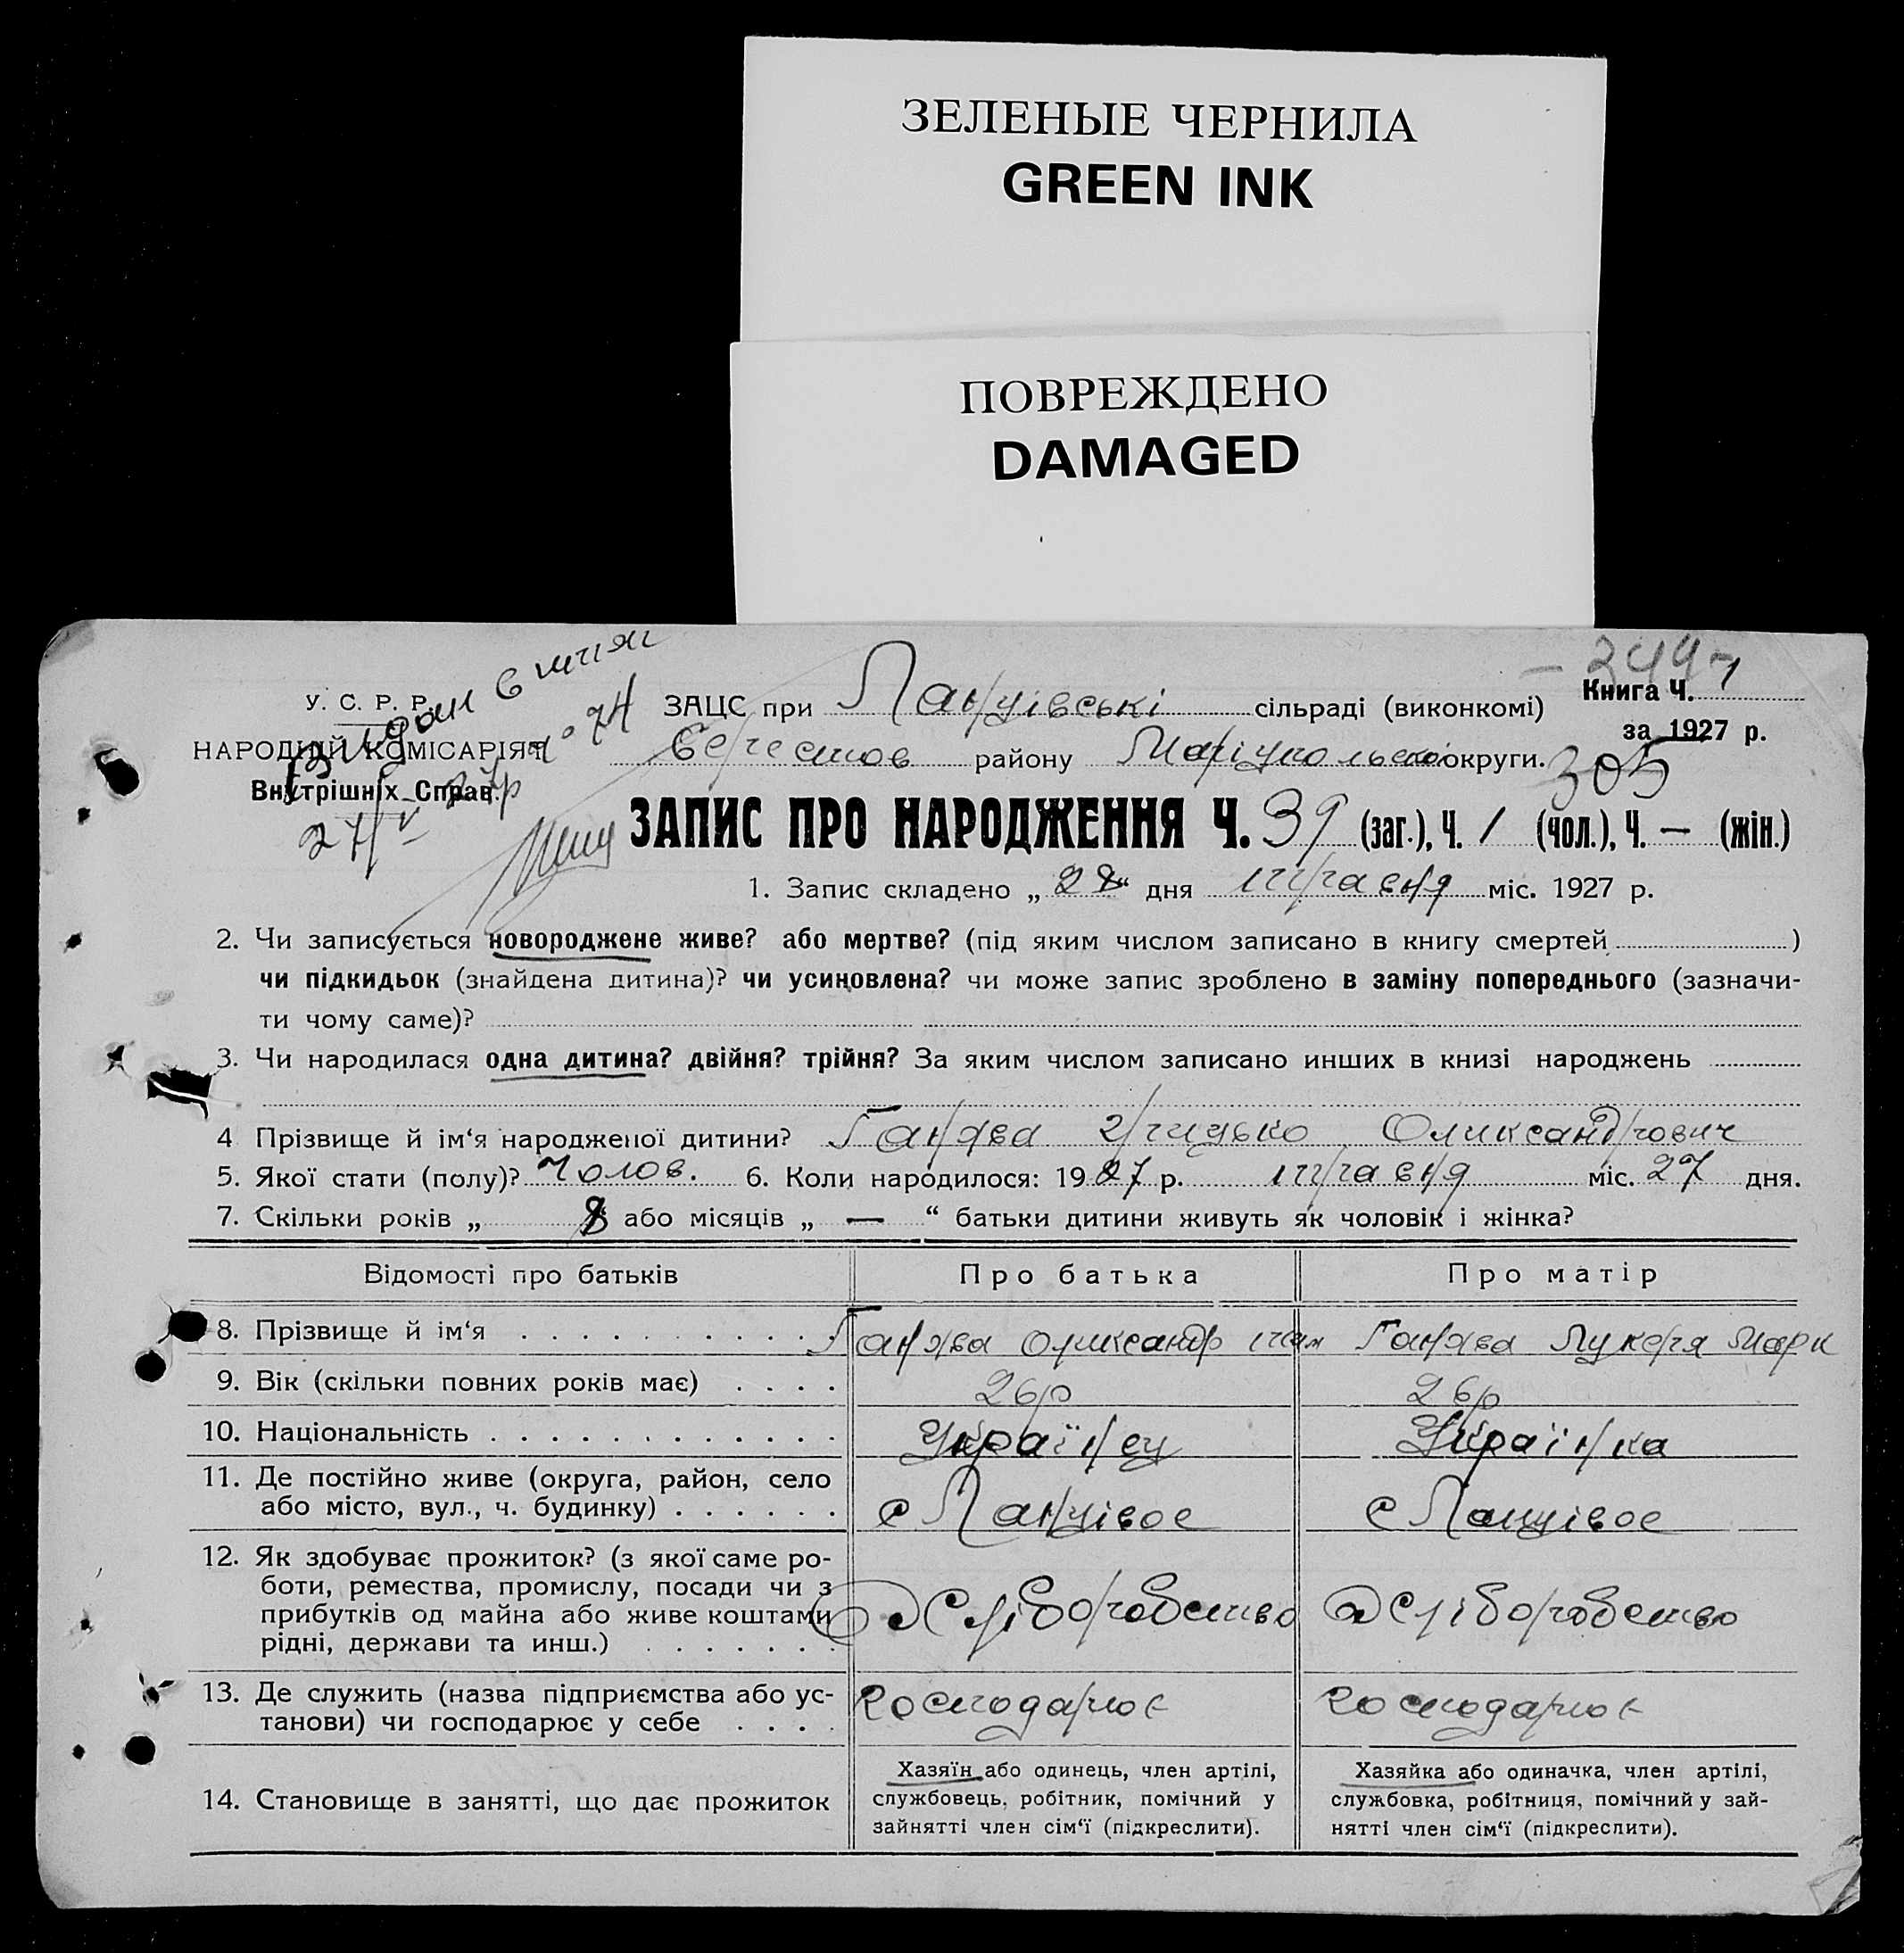 ЗЕЛЕНЫЕ ЧЕРНИЛА
GREEN INK
ПОВРЕЖДЕНО
DAMAGED
- 244 -
У. С. Р. Р.
НАРОДНІЙ КОМІСАРІЯТ
Внутрішніх Справ.
№ 74
ЗАЦС при Ланцівські сільраді (виконкомі)
Книга Ч. 1
за 1927 р.
району Маріупольської округи.
305
ЗАПИС ПРО НАРОДЖЕННЯ Ч. 39 (заг.), Ч. 1 (чол.), Ч. — (жін.)
1. Запис складено „ 28 “ дня травня міс. 1927 р.
2. Чи записується новороджене живе? або мертве? (під яким числом записано в книгу смертей )
чи підкидьок (знайдена дитина)? чи усиновлена? чи може запис зроблено в заміну попереднього (зазначи-
ти чому саме)?
3. Чи народилася одна дитина? двійня? трійня? За яким числом записано инших в книзі народжень
4 Прізвище й ім‘я народженої дитини? Ганява Грицько Оликсандрович
5. Якої стати (полу)? Чолов. 6. Коли народилося: 1927 р. травня міс. 27 дня.
7. Скільки років „ 8 або місяців „ — “ батьки дитини живуть як чоловік і жінка?
Відомості про батьків Про батька Про матір
8. Прізвище й ім‘я Ганява Олександр Ганява Лукеря Марк
9. Вік (скільки повних років має) 26р 26р
10. Національність Українец Українка
11. Де постійно живе (округа, район, село
або місто, вул., ч. будинку) с Ланцівое с Ланцівое
12. Як здобуває прожиток? (з якої саме ро-
боти, ремества, промислу, посади чи з
прибутків од майна або живе коштами
рідні, держави та инш.) Хліборобство Хліборобство
13. Де служить (назва підприємства або ус-
танови) чи господарює у себе господарює господарює
14. Становище в занятті, що дає прожиток
Хазяїн або одинець, член артілі,
службовець, робітник, помічний у
зайнятті член сім‘ї (підкреслити).
Хазяйка або одиначка, член артілі,
службовка, робітниця, помічний у зай-
нятті член сім‘ї (підкреслити).